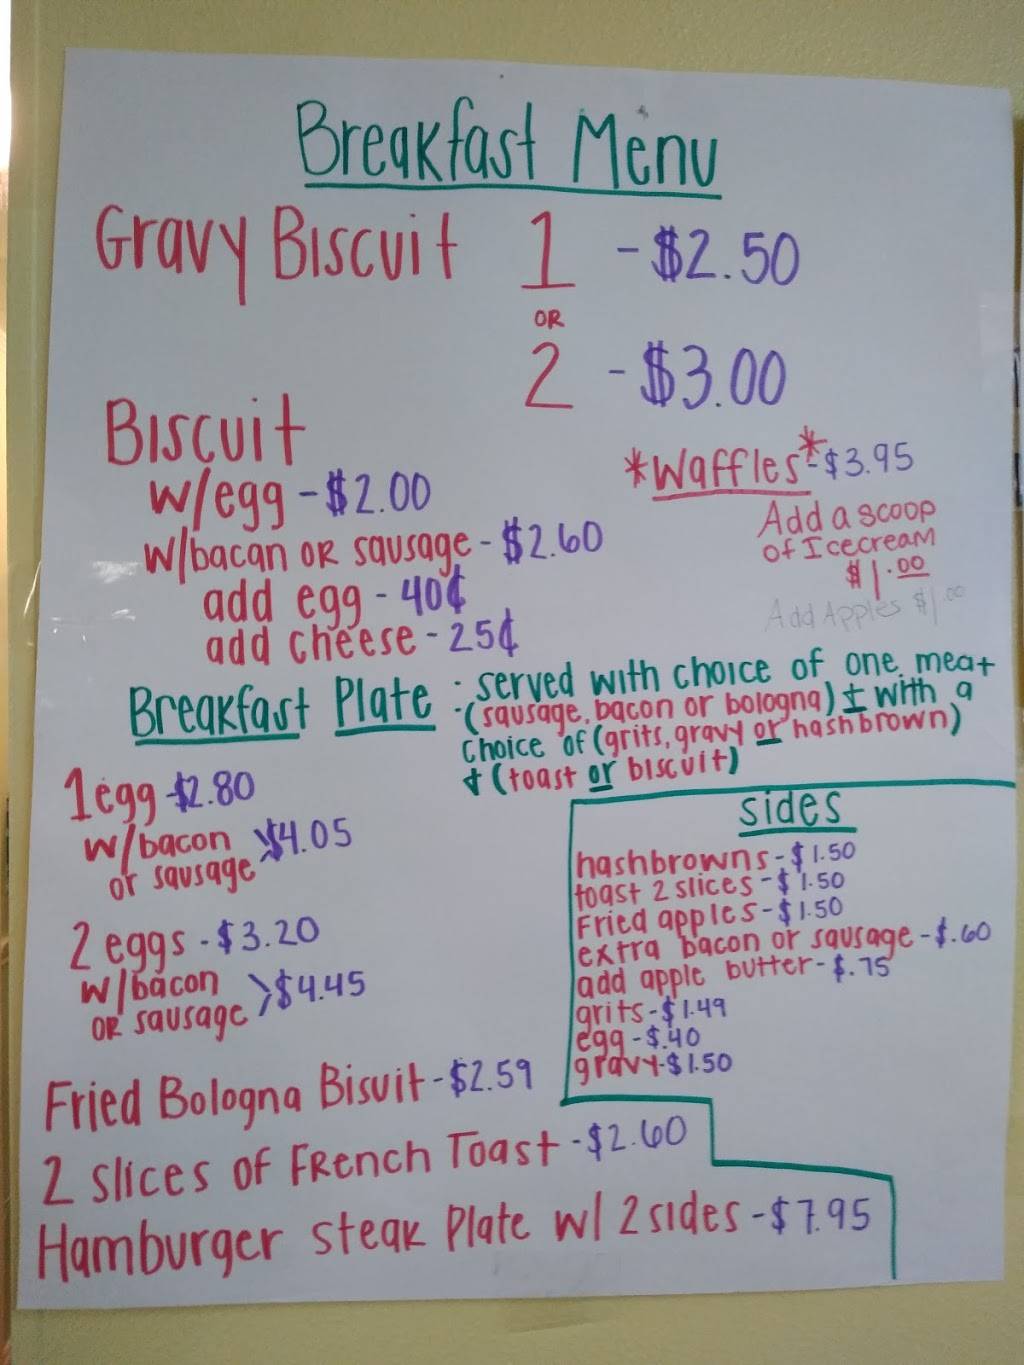 Breakfast Menu
Gravy Biscuit 1 - $2.50
OR
2 - $3.00
Biscuit
w/egg - $2.00
w/bacan OR sausage - $2.60
add egg - 40¢
add cheese - 25¢
*Waffles* - $3.95
Add a scoop
of Icecream
$1.00
Add Apples $1.00
Breakfast Plate : served with choice of one meat
(sausage, bacon or bologna) ± with a
choice of (grits, gravy or hashbrown)
+ (toast or biscuit)
1 egg - $2.80
w/bacon
or sausage > $4.05
2 eggs - $3.20
w/bacon
OR sausage > $4.45
sides
hashbrowns - $1.50
toast 2 slices - $1.50
Fried apples - $1.50
extra bacon or sausage - $.60
add apple butter - $.75
grits - $1.49
egg - $.40
gravy - $1.50
Fried Bologna Bisuit - $2.59
2 slices of French Toast - $2.60
Hamburger steak Plate w/ 2 sides - $7.95